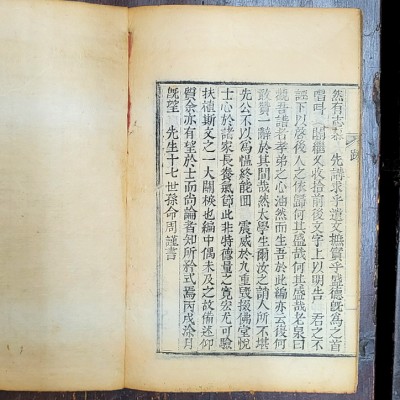 然有志慕 先講求乎遺文摭實乎盛德旣爲之首
唱叫 闕繼又收拾前後文字上以明告 君之不
誣下以啓後人之依歸何其盛哉何其盛哉老泉曰
觀吾譜者孝弟之心油然而生吾於此編亦云後何
敢贅一辭於其間哉然太學生爾汝之請人所不堪
先公不以爲慍終能回 震威於九重毀撤佛堂悅
士心於諸家長養氣節此非特德量之寬宏尤可驗
扶植斯文之一大關棙也編中偶未及之故備述仰
質余亦有望於士而尙論者知所矜式焉丙戌涂月
旣望 先生十七世孫命周謹書
跋